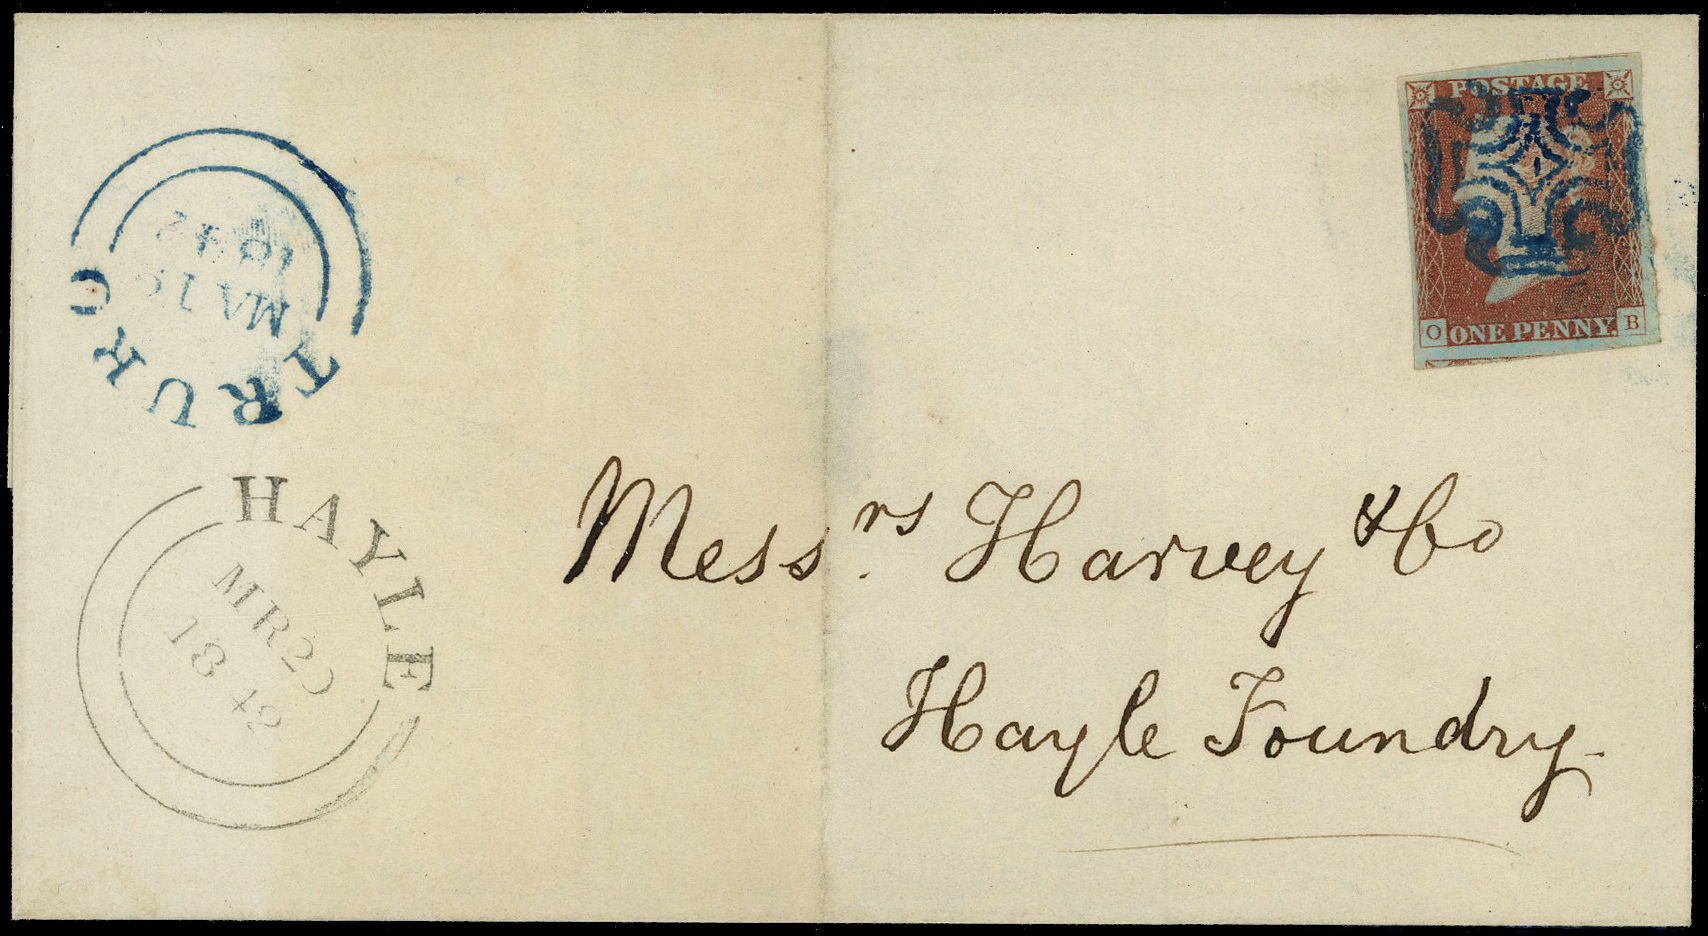 POSTAGE
O ONE PENNY. B
TRURO
1842
HAYLE
MR 20
1842
Mess.rs Harvey & Co
Hayle Foundry